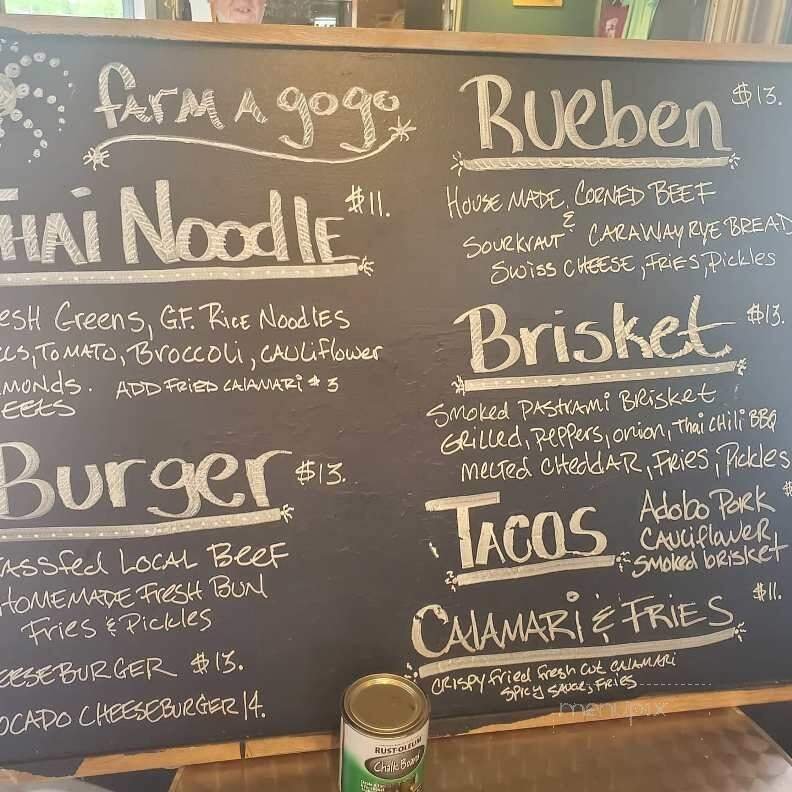 farm a gogo
THAi NoodlE $11.
esH Greens, G.F. Rice NoodlES
LLS, TOMATO, BROCCOLi, CAULiflower
MONdS. ADD FRiED CALAMARi $3
EETS
Burger $13.
ASSfed LOCAL BEEF
HOMEMADE FRESH BUN
Fries & Pickles
EESEBURGER $13.
OCADO CHEESEBURGER 14.
Rueben $13.
House MADE CORNED BEEF
&
SOURKRAUT CARAWAY RYE BREAD
SWiSS CHEESE, FRiES, Pickles
Brisket $13.
Smoked PASTRAMi Brisket
GRILLED, PEPPERS, ONiON, THAi CHiLi BBQ
MELTED CHEDDAR, FRiES, Pickles
TACOS
Adobo Pork $
CAULiFLAWER
SMOKED bRiSKET
CALAMARi & FRiES $11.
CRiSPY fRiEd fResH CUT CALAMARi
SPiCY SAUCE, FRiES
menupix
RUST-OLEUM
Chalk Board